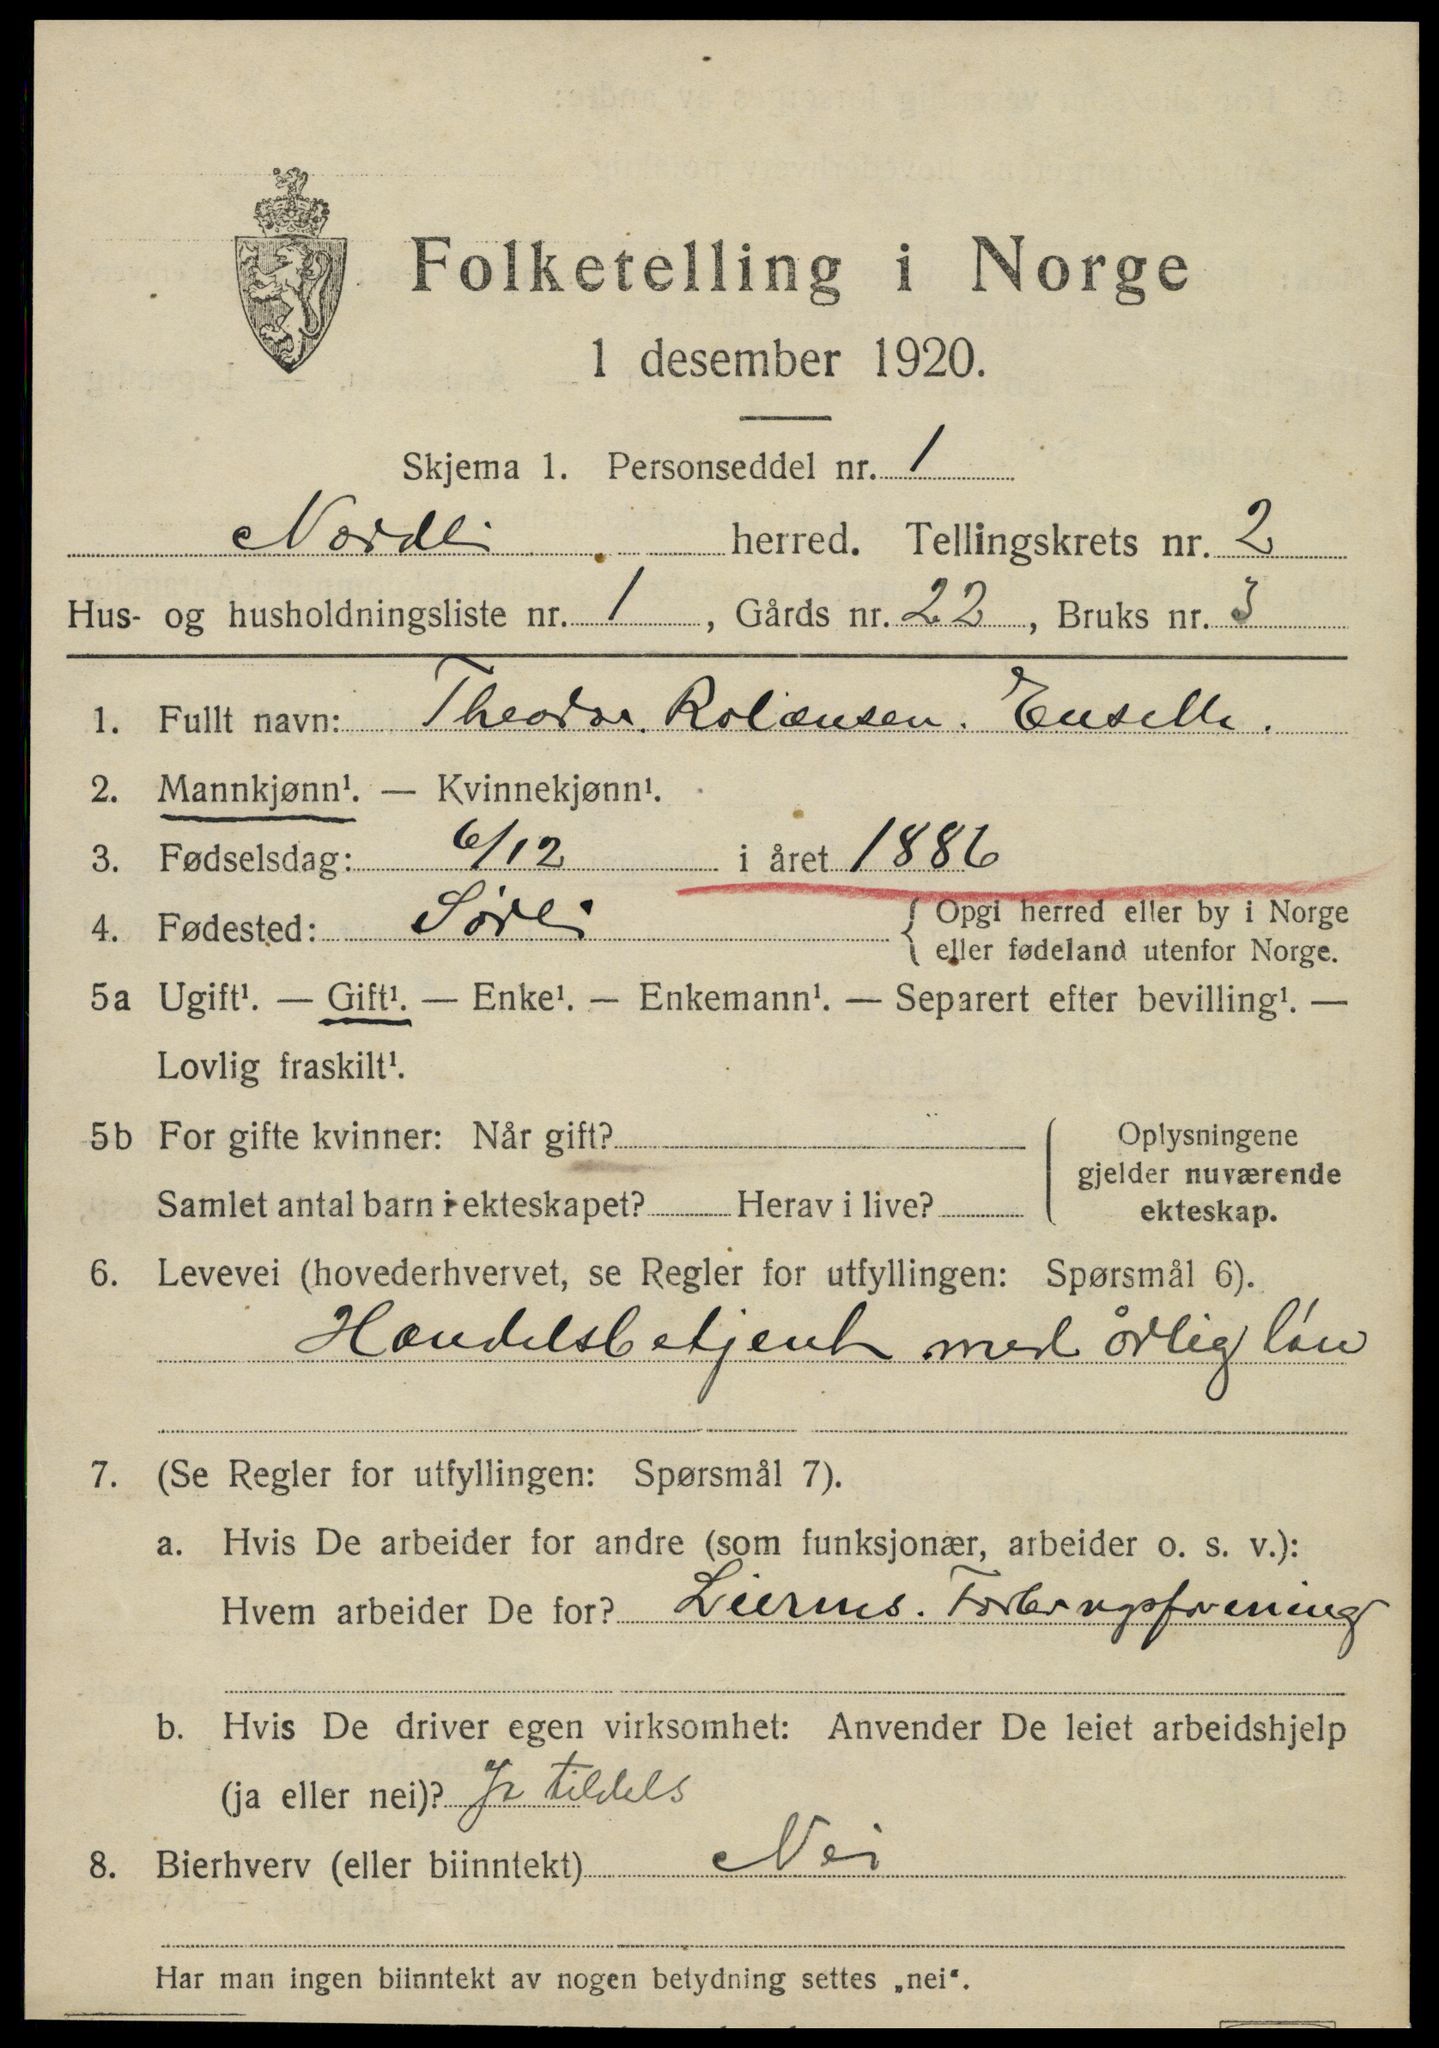 Folketelling i Norge
1 desember 1920.
Skjema 1. Personseddel nr. 1
Nordli herred. Tellingskrets nr. 2
Hus- og husholdningsliste nr. 1, Gårds nr. 22, Bruks nr. 3
1. Fullt navn: Theodor
2. Mannkjønn¹. — Kvinnekjønn¹.
3. Fødselsdag: 6/12 i året 1886
4. Fødested: Sørli { Opgi herred eller by i Norge
eller fødeland utenfor Norge.
5a Ugift¹. — Gift¹. — Enke¹. — Enkemann¹. — Separert efter bevilling¹. —
Lovlig fraskilt¹.
5b For gifte kvinner: Når gift? Oplysningene
gjelder nuværende
Samlet antal barn i ekteskapet? Herav i live?
ekteskap.
6. Levevei (hovederhvervet, se Regler for utfyllingen: Spørsmål 6).
Handelsbetjent med årlig løn
7. (Se Regler for utfyllingen: Spørsmål 7).
a. Hvis De arbeider for andre (som funksjonær, arbeider o. s. v.):
Hvem arbeider De for? Liernes. Forbrugsforening
b. Hvis De driver egen virksomhet: Anvender De leiet arbeidshjelp
(ja eller nei)? Ja tildels
8. Bierhverv (eller biinntekt) Nei
Har man ingen biinntekt av nogen betydning settes „nei“.